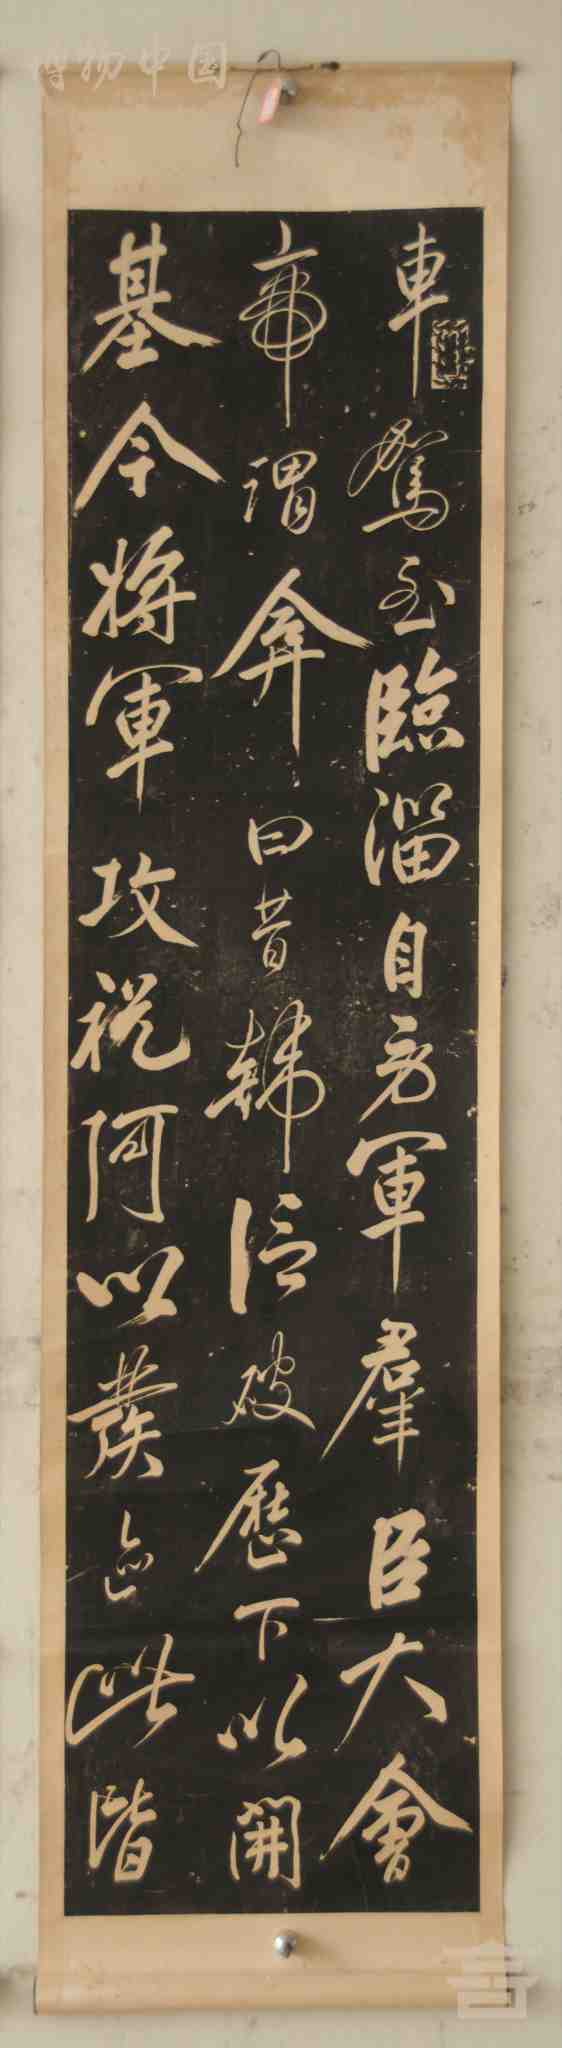 車駕至臨淄自勞軍羣臣大會
帝謂弇曰昔韓信破歷下以開
基今將軍攻祝阿以發迹此皆
博物中国